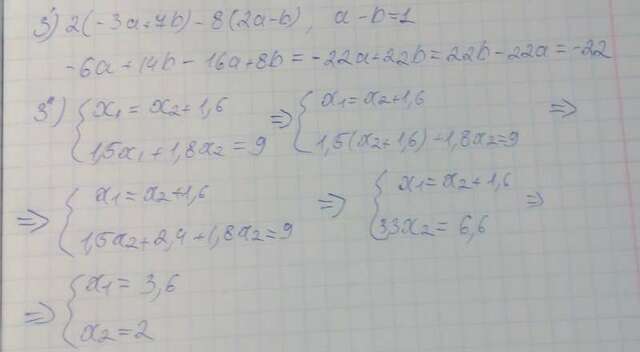 3') 2(-3a+7b)-8(2a-b), a-b=1
-6a+14b-16a+8b=-22a+22b=22b-22a=-22
3'') { x₁=x₂+1,6 => { x₁=x₂+1,6 =>
1,5x₁+1,8x₂=9 1,5(x₂+1,6)+1,8x₂=9
=> { x₁=x₂+1,6 => { x₁=x₂+1,6 =>
1,5x₂+2,4+1,8x₂=9 3,3x₂=6,6
=> { x₁=3,6
x₂=2